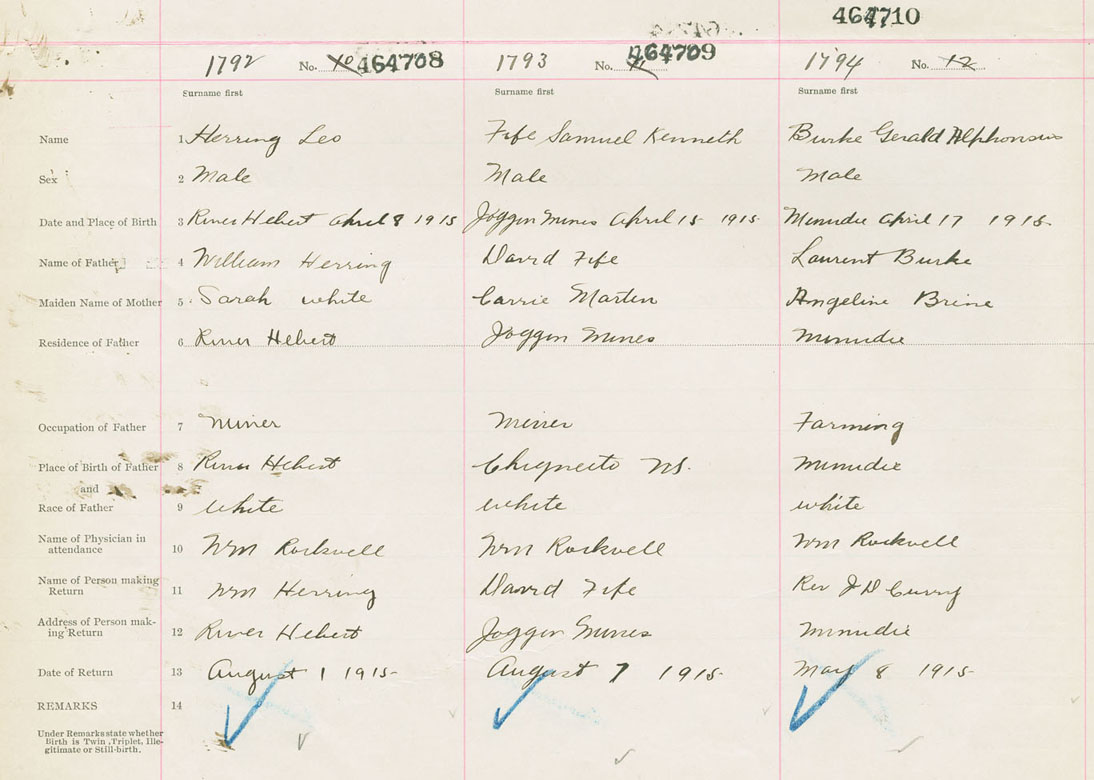 464710
1792 No. 10 464708 1793 No. 11 464709 1794 No. 12
Surname first Surname first Surname first
Name 1 Herring Leo Fife Samuel Kenneth Burke Gerald Alphonsus
Sex 2 Male Male Male
Date and Place of Birth 3 River Hebert April 8 1915 Joggin Mines April 15 1915 Minudie April 17 1915
Name of Father 4 William Herring David Fife Laurent Burke
Maiden Name of Mother 5 Sarah white Carrie Martin Angeline Brine
Residence of Father 6 River Hebert Joggin Mines Minudie
Occupation of Father 7 Miner Miner Farming
Place of Birth of Father 8 River Hebert Chignecto NS. Minudie
and
Race of Father 9 white white white
Name of Physician in
attendance 10 Wm Rockwell Wm Rockwell Wm Rockwell
Name of Person making
Return 11 Wm Herring David Fife Rev J D Curry
Address of Person mak-
ing Return 12 River Hebert Joggin Mines Minudie
Date of Return 13 August 1 1915 August 7 1915 May 8 1915
REMARKS 14
Under Remarks state whether
Birth is Twin, Triplet, Ille-
gitimate or Still-birth.